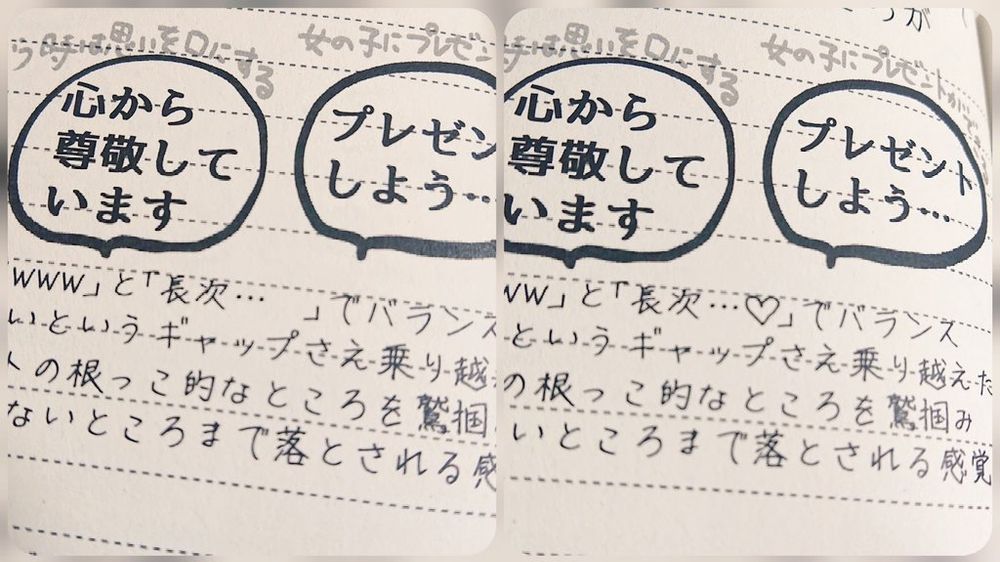 う時は思いを口にする
女の子にプレゼン
心から
尊敬して
います
プレゼン
しよう…
WWW」と「長次… 」でバランス
いというギャップさえ乗り越
の根っこ的なところを鷲掴
ないところまで落とされる感
時は思いを口にする
女の子にプレゼントが
心から
尊敬して
います
プレゼント
しよう…
WW」と「長次…♡」でバランス
というギャップさえ乗り越えた
の根っこ的なところを鷲掴み
いところまで落とされる感覚